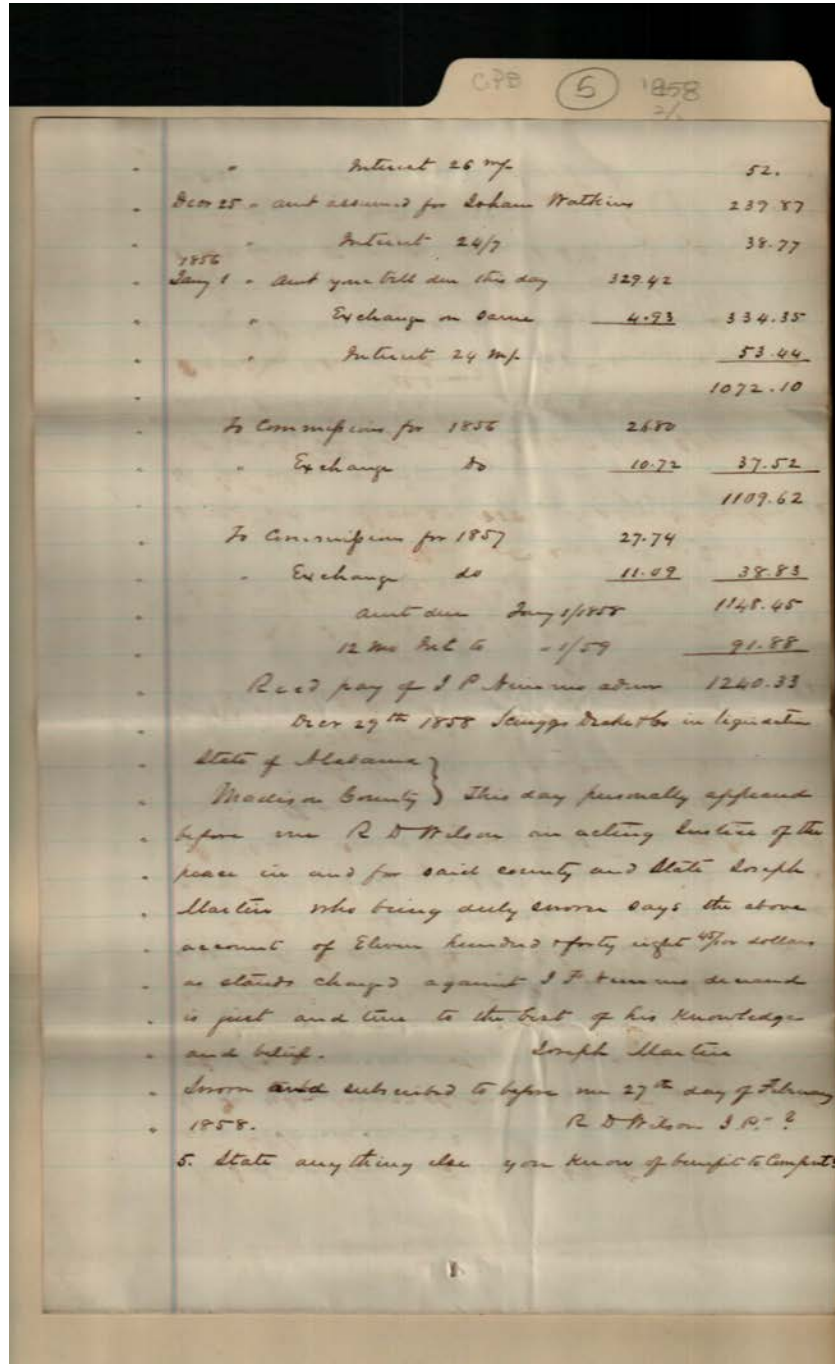 CPB 5 1858
2/
" " Interest 26 m/ 52.
" Decr 25 " amt assumed for Isham Watkins 239.87
" " Interest 24/7 38.77
1856
" Jany 1 " Amt your bill due this day 329.42
" " Exchange on same 4.93 334.35
" " Interest 24 m/ 53.44
" 1072.10
" To Commissions for 1856 2680
" " Exchange Do 10.72 37.52
" 1109.62
" To Commissions for 1857 27.74
" " Exchange do 11.09 38.83
" amt due Jany 1/1858 1148.45
" 12 Mo Int to " 1/59 91.88
" Recd pay of I P Nimmo admr 1240.33
" Decr 29th 1858 Scruggs Drake & Co in liquidation
" State of Alabama }
" Madison County } This day personally appeared
" before me R D Wilson an acting Justice of the
" peace in and for said county and State Joseph
" Martin who being duly sworn says the above
" account of Eleven hundred & forty eight 45/100 dollars
" as stands charged against I P Nimmo deceased
" is just and true to the best of his knowledge
" and belief. Joseph Martin
" Sworn and subscribed to before me 27th day of February
" 1858. R D Wilson J.P. - ?
5. State anything else you know of benefit to Complt?